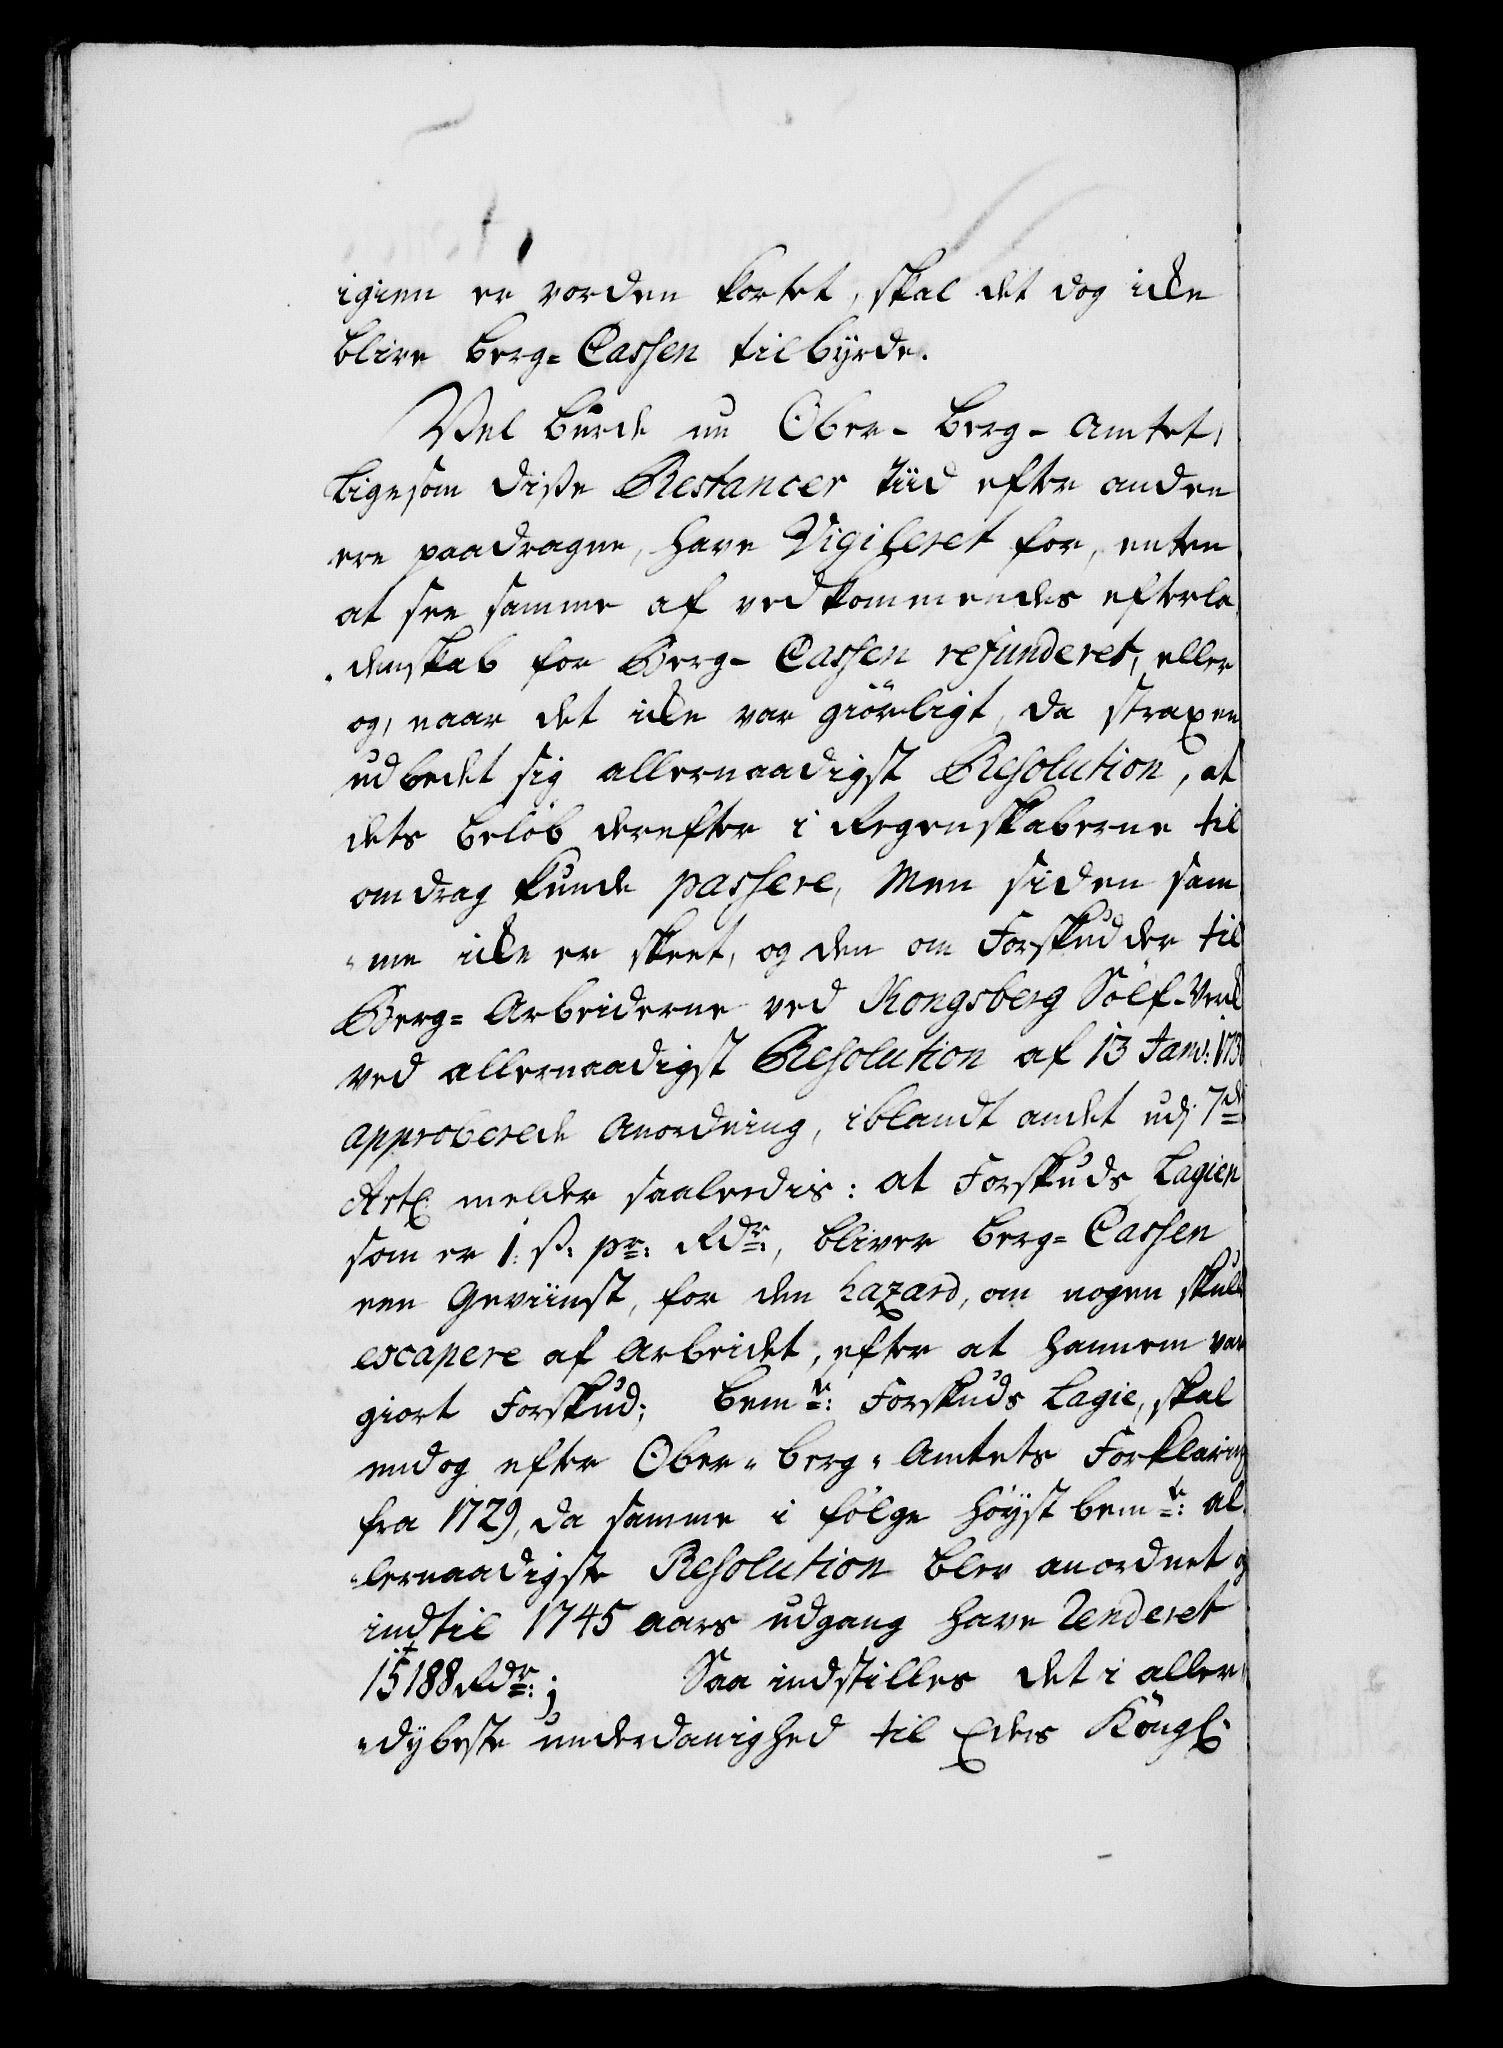 igien er vorden kortet, skal det dog icke
blive Berg= Cassen til byrde.
Vel burde nu Ober- Berg- Amtet,
ligesom disse Restancer tiid efter anden
ere paadragne, have Vigileret for, enten
at see samme af vedkommendes efterla
denskab for Berg- Cassen refunderet, eller
og, naar det icke var giörligt, da straxen
udbedet sig allernaadigst Resolution, at
dets belöb derefter i Regenskaberne til
omdrag kunde passere, Men siden sam
me icke er skeet, og den om Forskudder til
Berg= Arbeiderne ved Kongsberg Sölf-Verck
ved allernaadigst Resolution af 13 Janv: 173
approberede Anordning, iblandt andet udj 7de
Art: melder saaledis: at Forskuds Lagien
som er 1. ß: pr: Rdr:, bliver Berg= Cassen
een Geviinst, for den hazard, om nogen skulle
escapere af Arbeidet, efter at hannem var
giort Forskud; bemte: Forskuds Lagie, skal
endog efter Ober= Berg= Amtets Forklaring
fra 1729, da samme i fölge höyst bemte: al
lernaadigste Resolution blev anordnet og
indtil 1745 aars udgang have renderet
15188 Rdr: ; Saa indstilles det i aller
dybeste underdanighed til Eders Kongl: